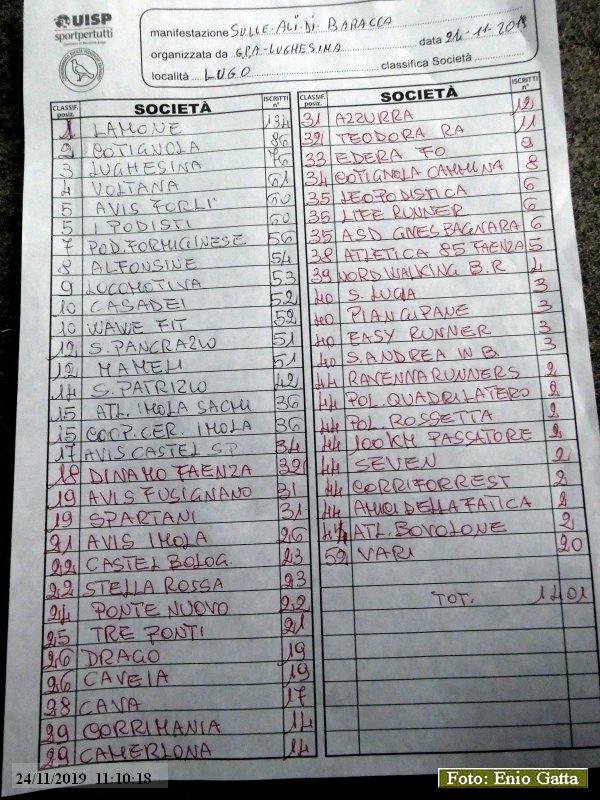 UISP
sportpertutti
manifestazione SULLE-ALI-DI BARACCA
organizzata da GPA-LUGHESINA data 24-11-2019
località LUGO classifica Società
CLASSIF. posiz. SOCIETÀ ISCRITTI n°
1 LAMONE 134
2 COTIGNOLA 86
3 LUGHESINA 76
4 VOLTANA 61
5 AVIS FORLI' 60
5 I PODISTI 60
7 POD. FORMIGINESE 56
8 ALFONSINE 54
9 LOCOMOTIVA 53
10 CASADEI 52
10 WAWE FIT 52
12 S. PANCRAZIO 51
12 MAMELI 51
14 S. PATRIZIO 42
15 ATL. IMOLA SACMI 36
15 COOP. CER. IMOLA 36
17 AVIS CASTEL S.P 34
18 DINAMO FAENZA 32
19 AVIS FUSIGNANO 31
19 SPARTANI 31
21 AVIS IMOLA 26
22 CASTEL BOLOG. 23
22 STELLA ROSSA 23
24 PONTE NUOVO 22
25 TRE PONTI 21
26 DRAGO 19
26 CAVEJA 19
28 CAVA 17
29 CORRIMANIA 14
29 CAMERLONA 14
CLASSIF. posiz. SOCIETÀ ISCRITTI n°
31 AZZURRA 12
32 TEODORA RA 11
33 EDERA FO 9
34 COTIGNOLA CAMMINA 8
35 LEOPODISTICA 6
35 LIFE RUNNER 6
35 ASD GNES BAGNARA 6
38 ATLETICA 85 FAENZA 5
39 NORD WALKING B.R 4
40 S. LUCIA 3
40 PIANGIPANE 3
40 EASY RUNNER 3
40 S. ANDREA IN B. 3
44 RAVENNA RUNNERS 2
44 POL. QUADRILATERO 2
44 POL. ROSSETTA 2
44 100 KM PASSATORE 2
44 SEVEN 2
44 CORRIFORREST 2
44 AMICI DELLA FATICA 2
44 ATL. BOVOLONE 2
52 VARI 20
TOT. 1401
24/11/2019 11:10:18
Foto: Enio Gatta